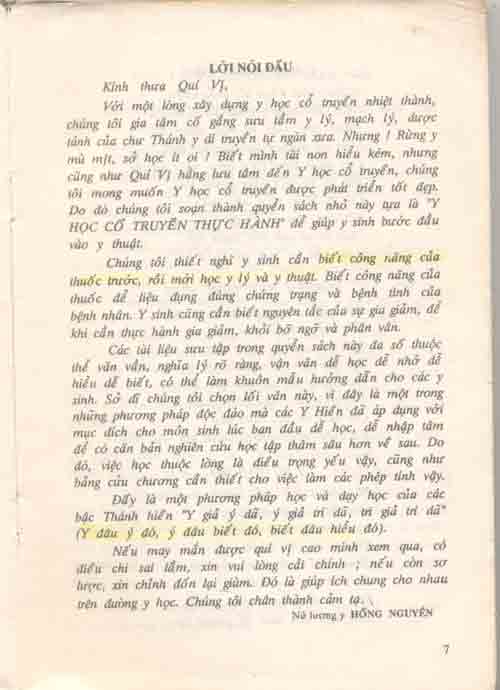 LỜI NÓI ĐẦU
Kính thưa Quí Vị,
Với một lòng xây dựng y học cổ truyền nhiệt thành,
chúng tôi gia tâm cố gắng sưu tầm y lý, mạch lý, dược
tánh của chư Thánh y di truyền tự ngàn xưa. Nhưng ! Rừng y
mù mịt, sở học ít oi ! Biết mình tài non hiểu kém, nhưng
cũng như Quí Vị hằng lưu tâm đến Y học cổ truyền, chúng
tôi mong muốn Y học cổ truyền được phát triển tốt đẹp.
Do đó chúng tôi soạn thành quyển sách nhỏ này tựa là "Y
HỌC CỔ TRUYỀN THỰC HÀNH" để giúp y sinh bước đầu
vào y thuật.
Chúng tôi thiết nghĩ y sinh cần biết công năng của
thuốc trước, rồi mới học y lý và y thuật. Biết công năng của
thuốc để liệu dụng đúng chứng trạng và bệnh tình của
bệnh nhân. Y sinh cũng cần biết nguyên tắc của sự gia giảm, để
khi cần thực hành gia giảm, khỏi bỡ ngỡ và phân vân.
Các tài liệu sưu tập trong quyển sách này đa số thuộc
thể văn vần, nghĩa lý rõ ràng, vận văn dễ học dễ nhớ dễ
hiểu dễ biết, có thể làm khuôn mẫu hướng dẫn cho các y
sinh. Sở dĩ chúng tôi chọn lối văn này, vì đây là một trong
những phương pháp độc đáo mà các Y Hiền đã áp dụng với
mục đích cho môn sinh lúc ban đầu dễ học, dễ nhập tâm
để có căn bản nghiên cứu học tập thâm sâu hơn về sau. Do
đó, việc học thuộc lòng là điều trọng yếu vậy, cũng như
bảng cửu chương cần thiết cho việc làm các phép tính vậy.
Đấy là một phương pháp học và dạy học của các
bậc Thánh hiền "Y giả ý dã, ý giả trí dã, trí giả trí dã"
(Y đâu ý đó, ý đâu biết đó, biết đâu hiểu đó).
Nếu may mắn được quí vị cao minh xem qua, có
điều chi sai lầm, xin vui lòng cải chính ; nếu còn sơ
lược, xin chỉnh đốn lại giùm. Đó là giúp ích chung cho nhau
trên đường y học. Chúng tôi chân thành cảm tạ.
Nữ lương y HỒNG NGUYÊN
7